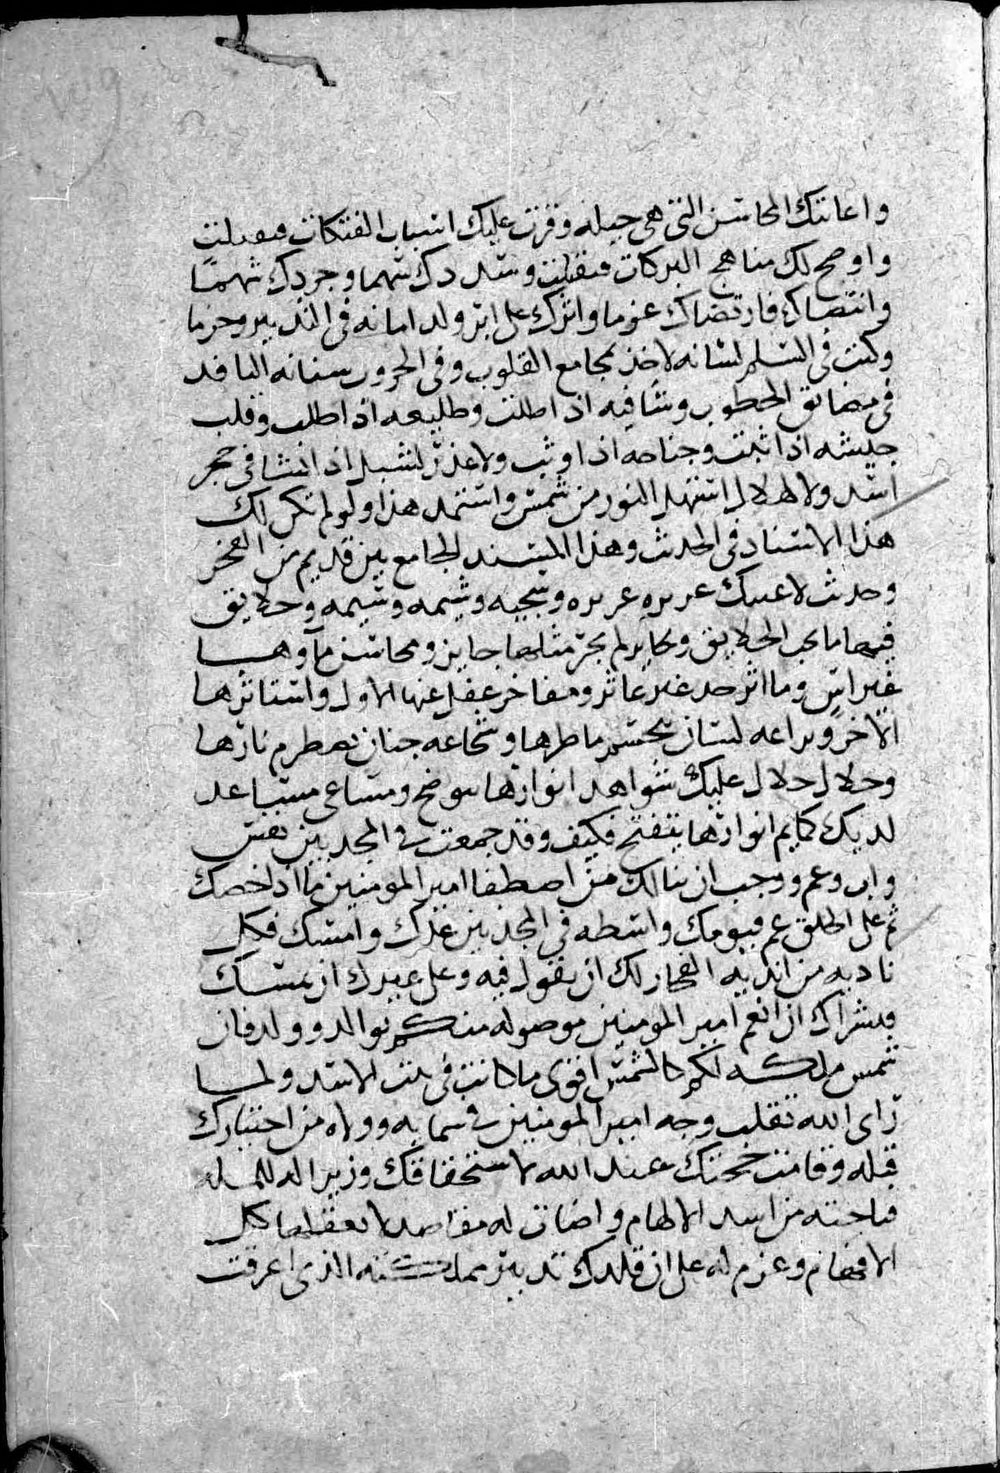 واعانتك المحاسن التى هى جيله وقرنت عليك اسباب الفتكات فبعدلت
واوضح لك مناهج البركات فتقبلت وسددك سهما وجردك شهما
وانتضاك فارتضاك عزما واثرك على اثر ولد امانه فى التدبير وحزما
وكنت فى السلم لسانه لاخذ بمجامع القلوب وفى الحرب سنانه النافد
فى مضايق الخطوب وساقيه اذا طلت وطليعه اذا طلب وقلب
جيشه اذا ثبت وجناحه اذا وثب ولا عذر لشبل اذا نشا فى حجر
اسد ولا هلال استهل النور من شمس واستمد هذا ولو لم تكن لك
هذا الاسناد فى الحدث وهذا المسند الجامع بين قديم من الفخر
وحدث لاغنتك غريزه عزيزه وسجيه وشيمه وشيمه وخلايق
فيها ما يحب الخلايق ونحايز لم يحز مثلها حايز ومحاسن ماوها
غير اسن وما اثر جد غير عاثر ومفاخر غفل عنها الاول واستاثر بها
الاخر وبراعه لسان ينجسم ماطرها وشجاعه جنان يضطرم نارها
وخلال جلال عليك شواهد انوارها توضح ومساعى مساعد
لديك كمايم انوارها تتفتح فكيف وقد جمعت فى المجد بين نفس
واب وعم ووجب ان نالك من اصطفا امير المومنين ما اذ اخصك
ثم على الخلق عم فيومك واسطه فى المجد بين غدك وامسك فكل
ناديه من اندية الفخار لك ان تقول فيه وعلى غيرك ان يمسك
فبشراك ان انعم امير المومنين موصوله منكم بوالد وولد وان
شمس ملكه لكم كالشمس اقوى ما كانت فى بيت الاسد ولما
راى الله تقلب وجه امير المومنين فى سمايه وولاه من اختيارك
قبله وقامت حجتك عند الله لاستحقاقك وزير الدولة
فناجته مراشد الالهام واضات له مقاصد لا تعقلها كل
الافهام وعزم له على ان قلدك تدبير مملكته الذى اعرقت